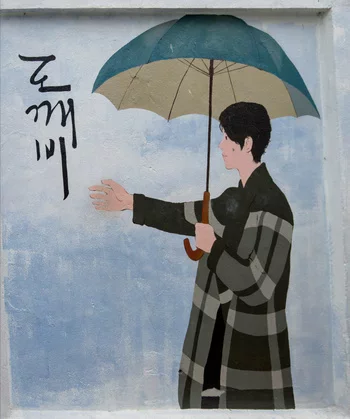 도
깨
비